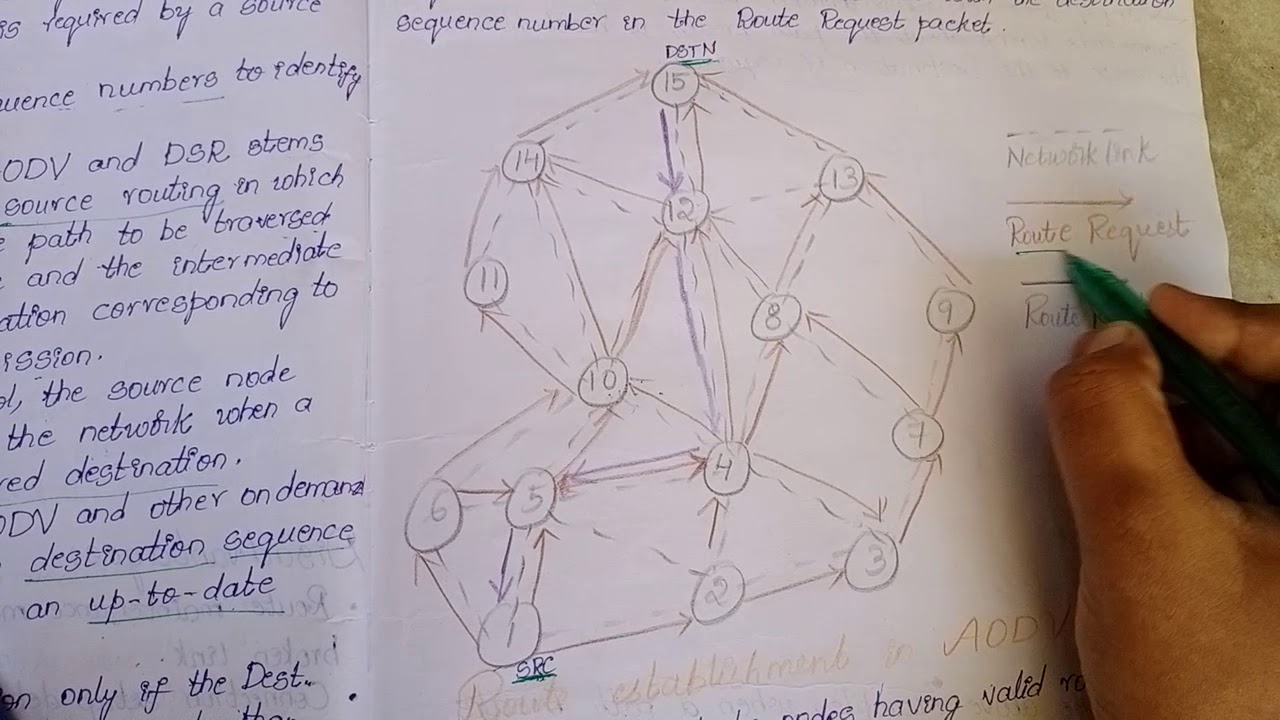 is required by a source
uence numbers to identify
ODV and DSR stems
source routing in which
path to be traversed
and the intermediate
ation corresponding to
ission.
ol, the source node
the network when a
red destination.
ODV and other ondemand
destination sequence
an up-to-date
on only if the Dest.
destination
sequence number in the Route Request packet.
DSTN
15
14
13
12
11
8
9
10
7
4
6
5
3
2
1
SRC
Network link
Route Request
Route
Route establishment in AODV
nodes having valid